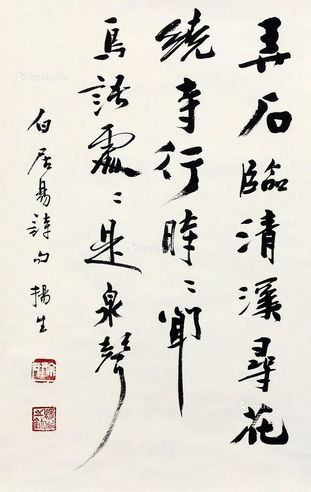 弄石臨清溪尋花
繞寺行時〻聞
鳥語處〻是泉聲
白居易詩句 揚生